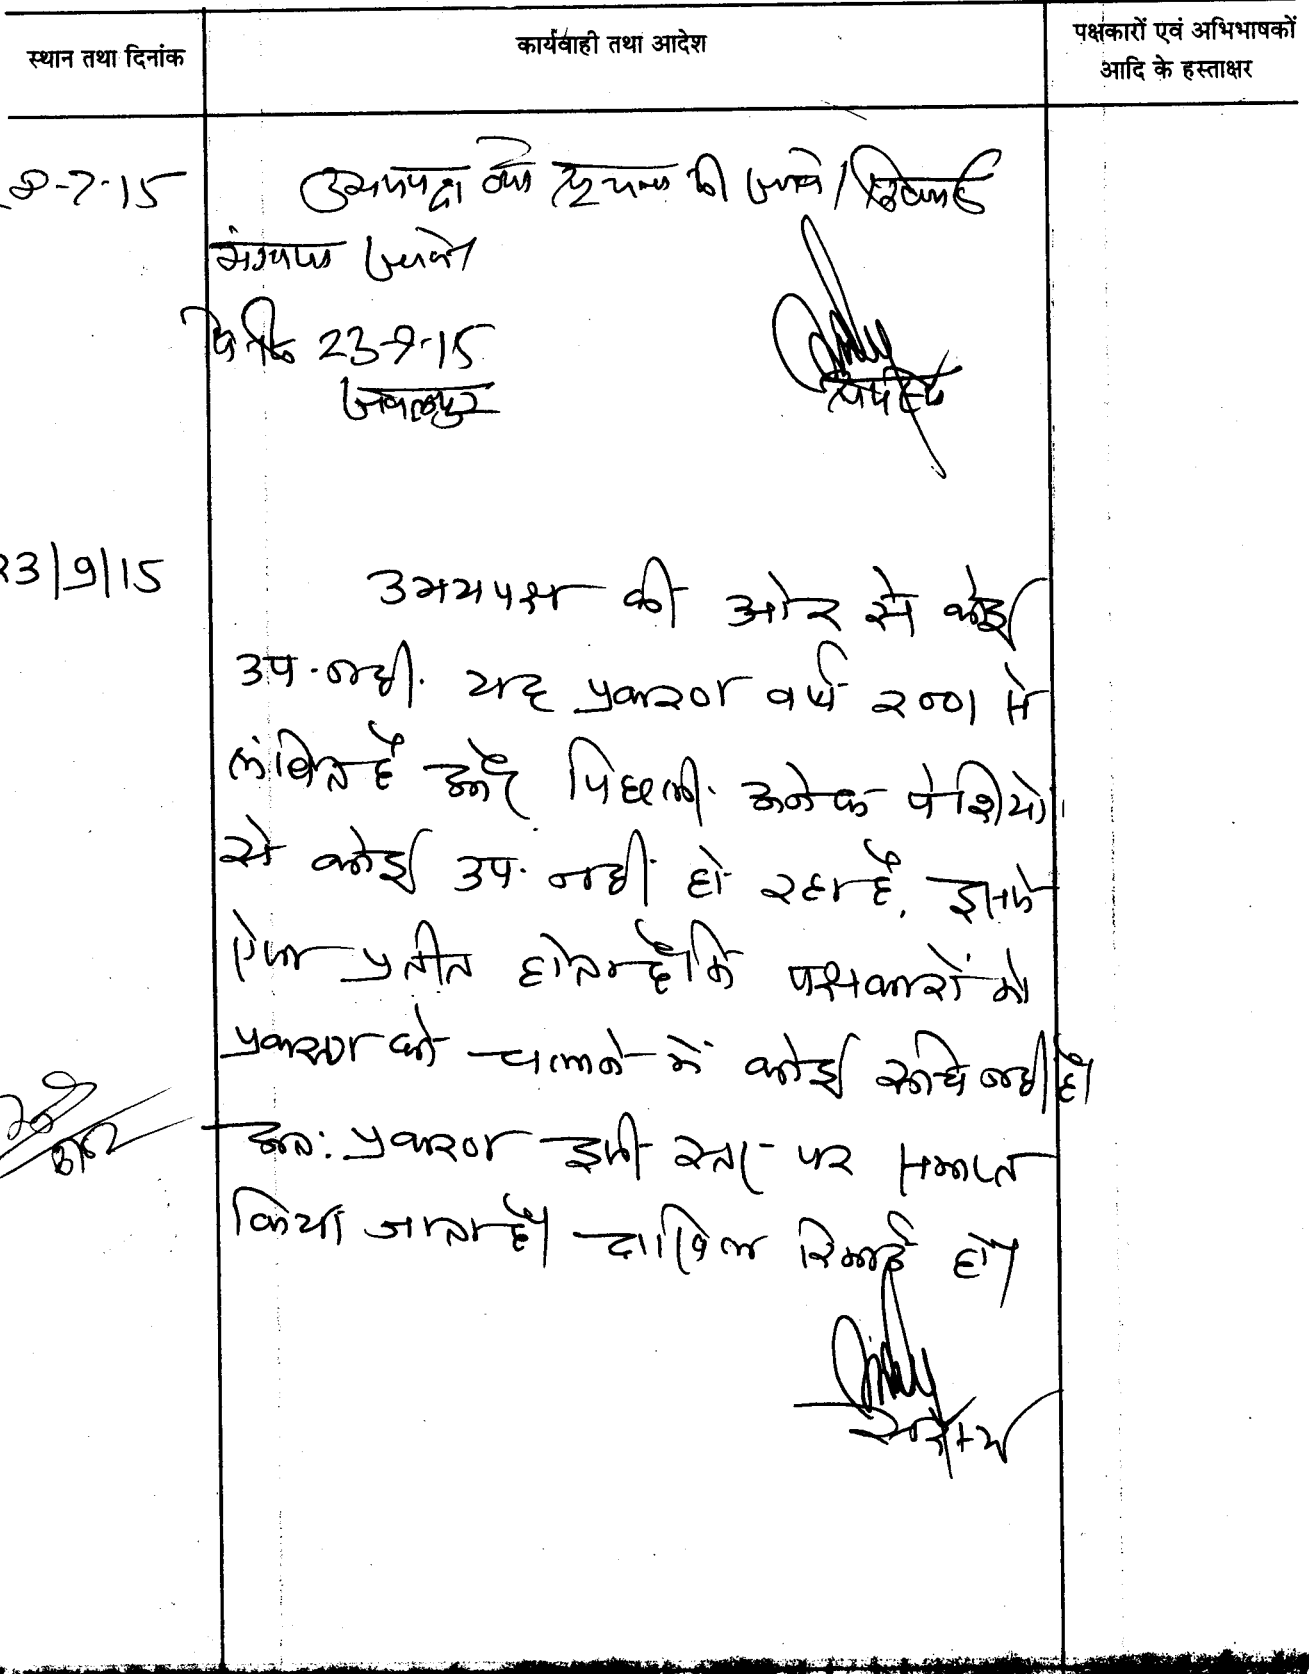 स्थान तथा दिनांक
कार्यवाही तथा आदेश
पक्षकारों एवं अभिभाषकों
आदि के हस्ताक्षर
8-7-15
उभयपक्ष को सूचना दी जावे। रिकार्ड
मंगवाया जावे।
23-9-15
जबलपुर
सदस्य
23/9/15
उभयपक्ष की ओर से कोई
उप. नहीं. यह प्रकरण वर्ष 2001 से
लंबित है और पिछली अनेक पेशियों
से कोई उप. नहीं हो रहा है. इससे
ऐसा प्रतीत होता है कि पक्षकारों को
प्रकरण को चलाने में कोई रूचि नहीं है।
अतः प्रकरण इसी स्तर पर समाप्त
किया जाता है। दाखिल रिकार्ड हो।
सदस्य